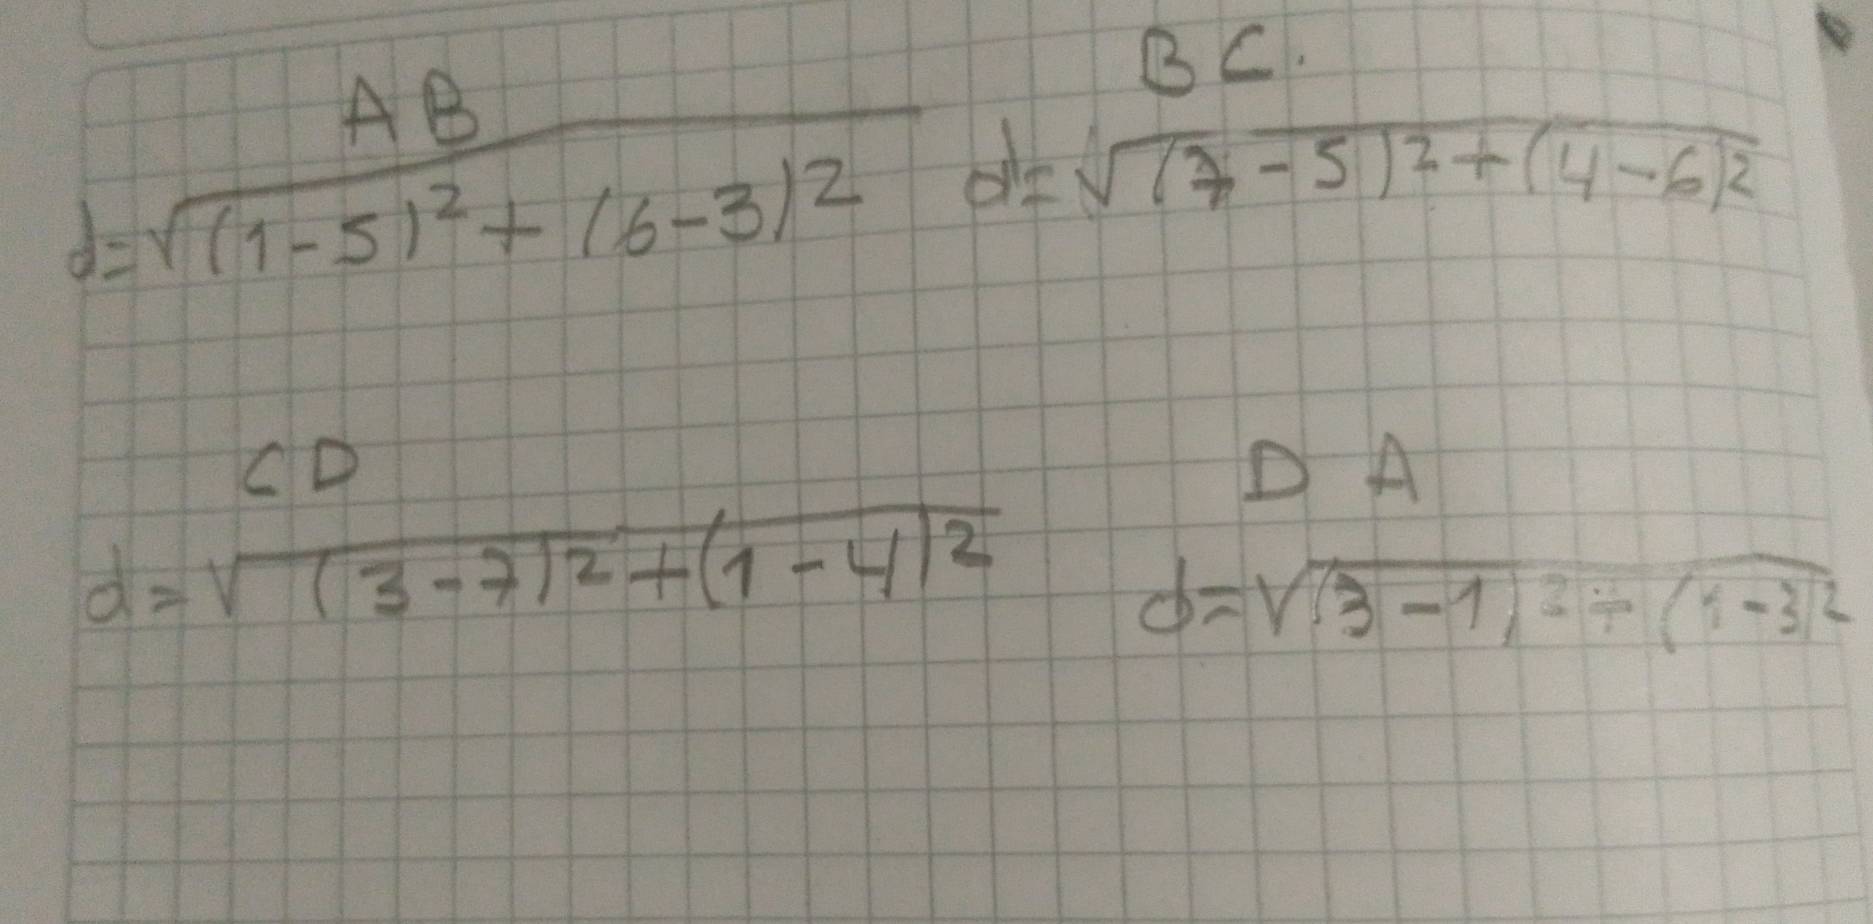 AB
d=√(1-5)²+(6-3)²
BC.
d=√(7-5)²+(4-6)²
CD
d=√(3-7)²+(1-4)²
DA
d=√(3-1)²+(1-3)²